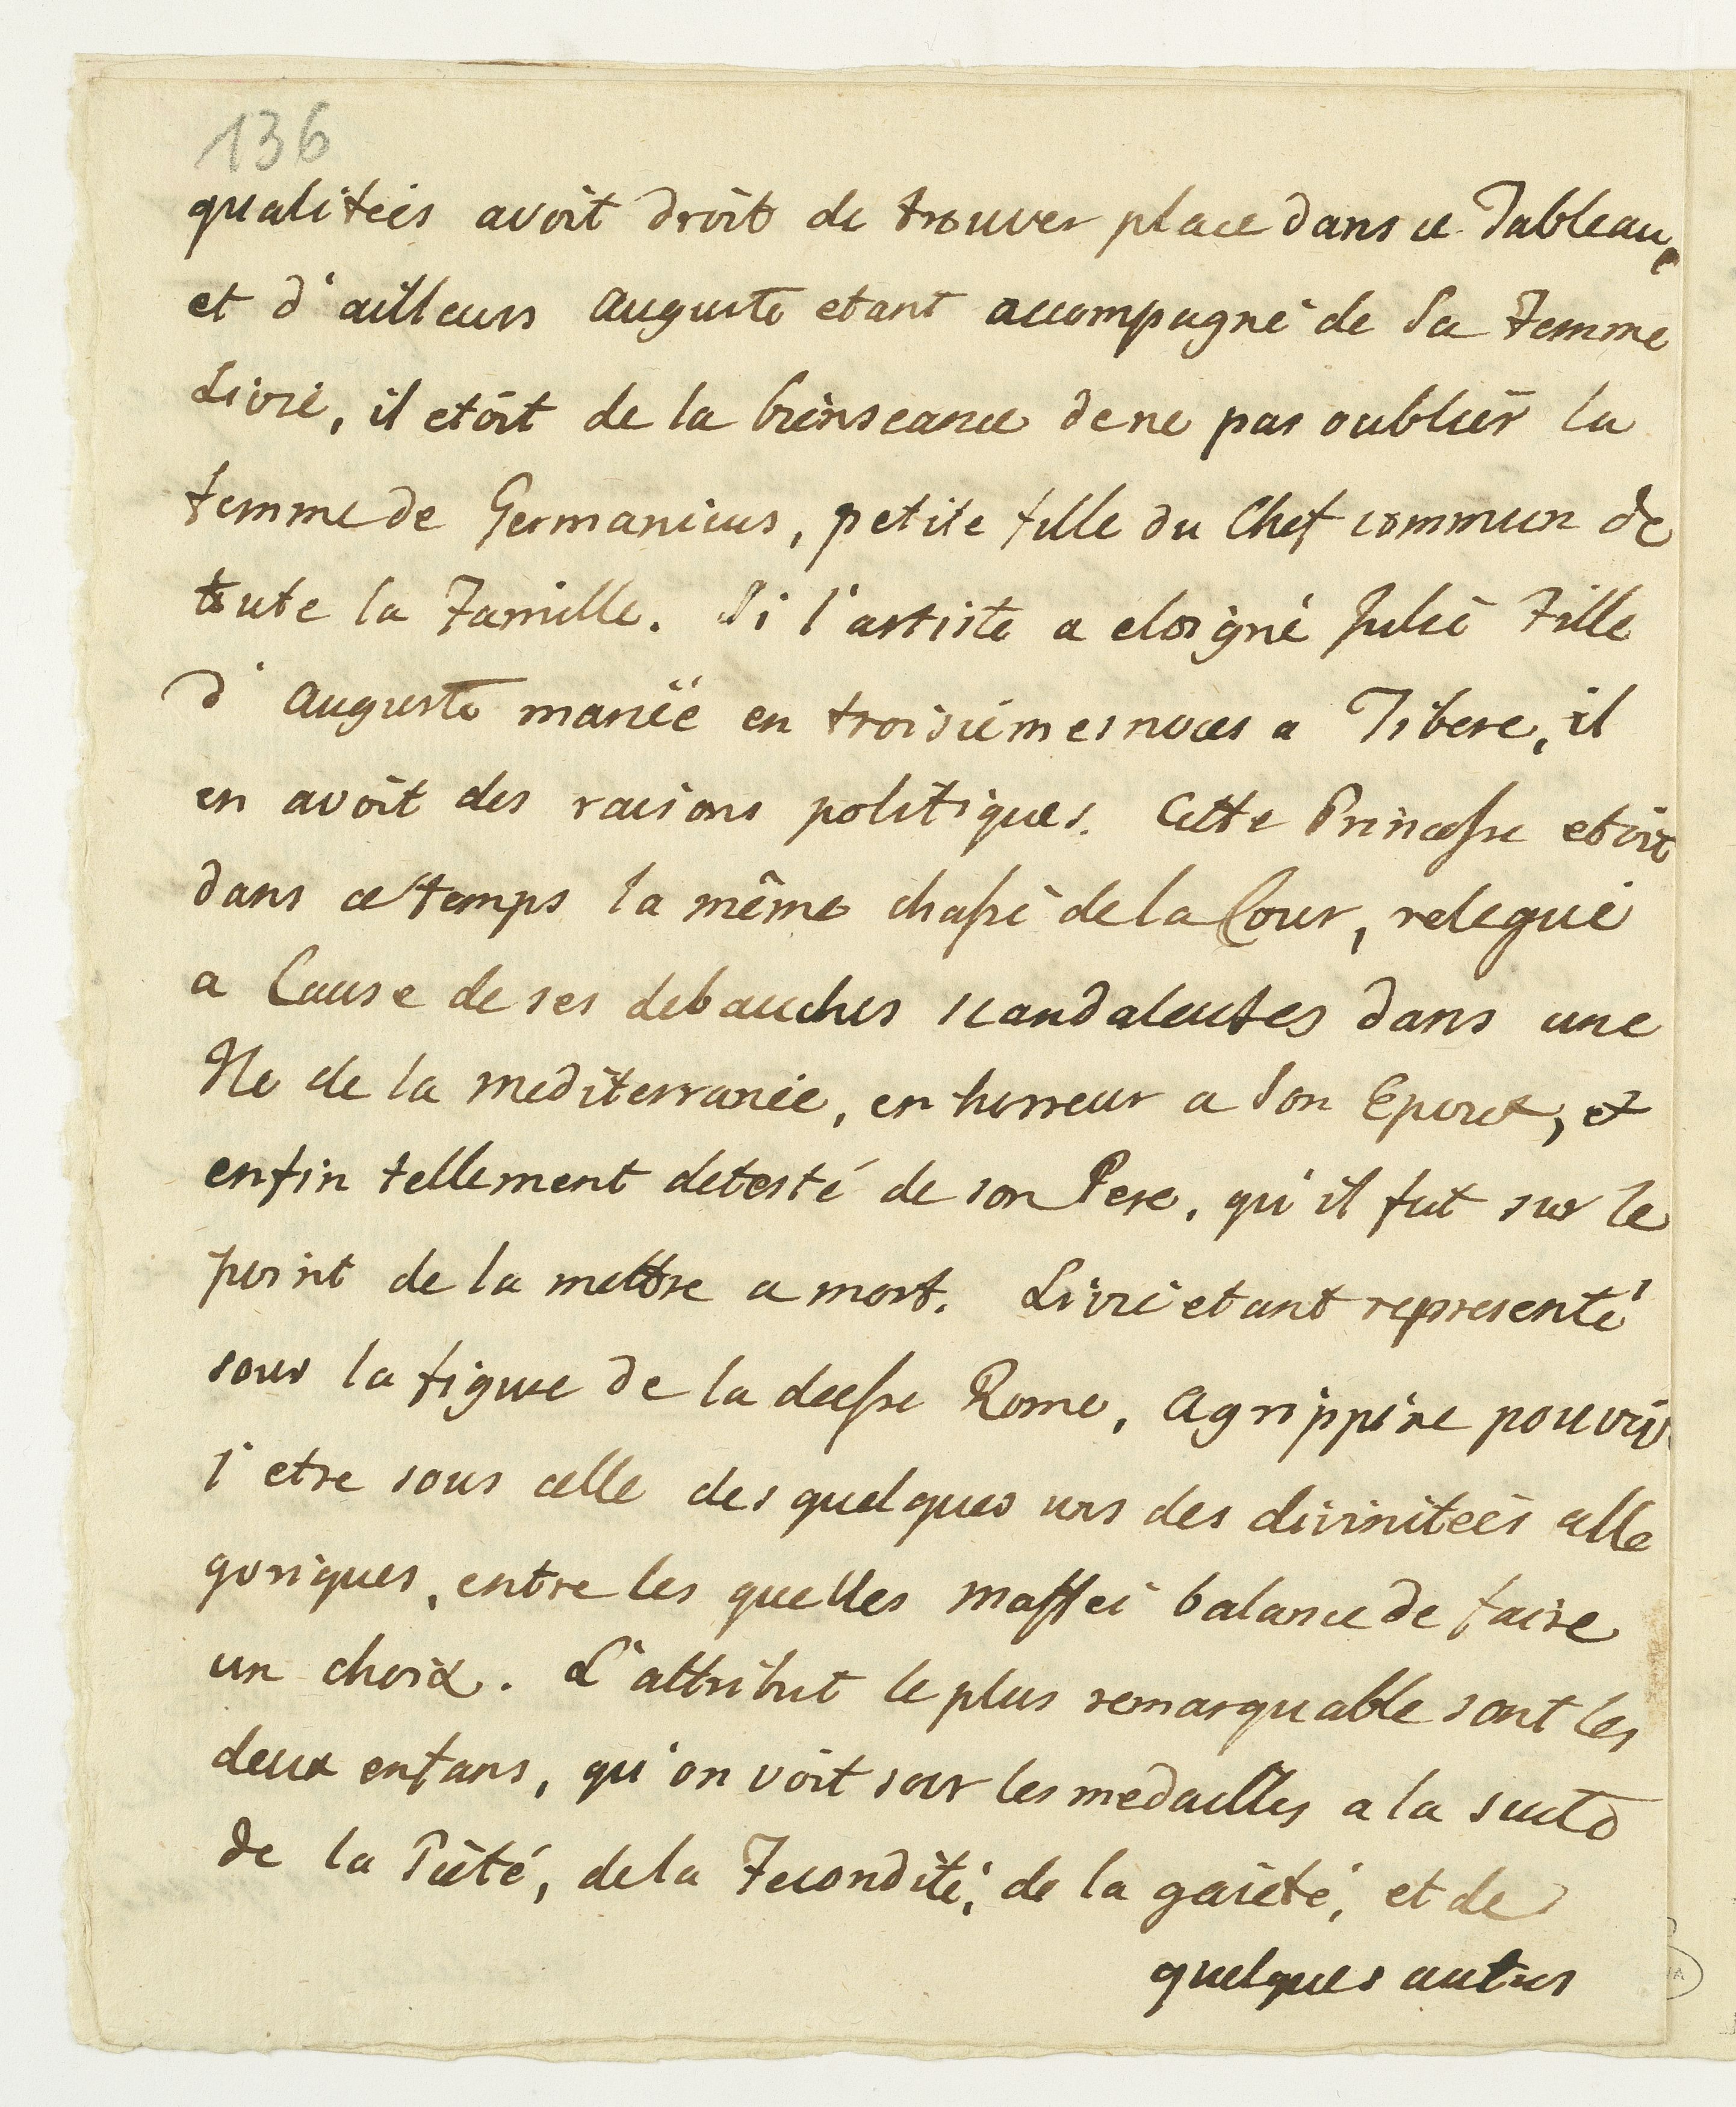 136
qualiteés avoit droit de trouver place dans ce Tableau,
et d'ailleurs Auguste etant accompagné de Sa Femme
Livie, il etoit de la bienseance de ne pas oublier la
femme de Germanicus, petite fille du Chef commun de
toute la Famille. Si l'artiste a eloigné Julie Fille
d'Auguste mariée en troisiemes noces a Tibere, il
en avoit des raisons politiques. Cette Princesse etoit
dans ce temps la même chassé de la Cour, relegué
a Cause de ses debauches scandaleuses dans une
Ile de la mediterranée, en horreur a Son Epoux, et
enfin tellement detesté de son Pere, qu'il fut sur le
point de la mettre a mort. Livie etant representé
sous la figure de la deesse Rome, Agrippine pouvoit
l'etre sous celle des quelques uns des diviniteés alle
goriques, entre les quelles Maffei balance de faire
un choix. L'attribut le plus remarquable sont les
deux enfans, qu'on voit sur les medailles a la suite
de la Pieté, de la Fecondité, de la gaieté, et de
quelques autres